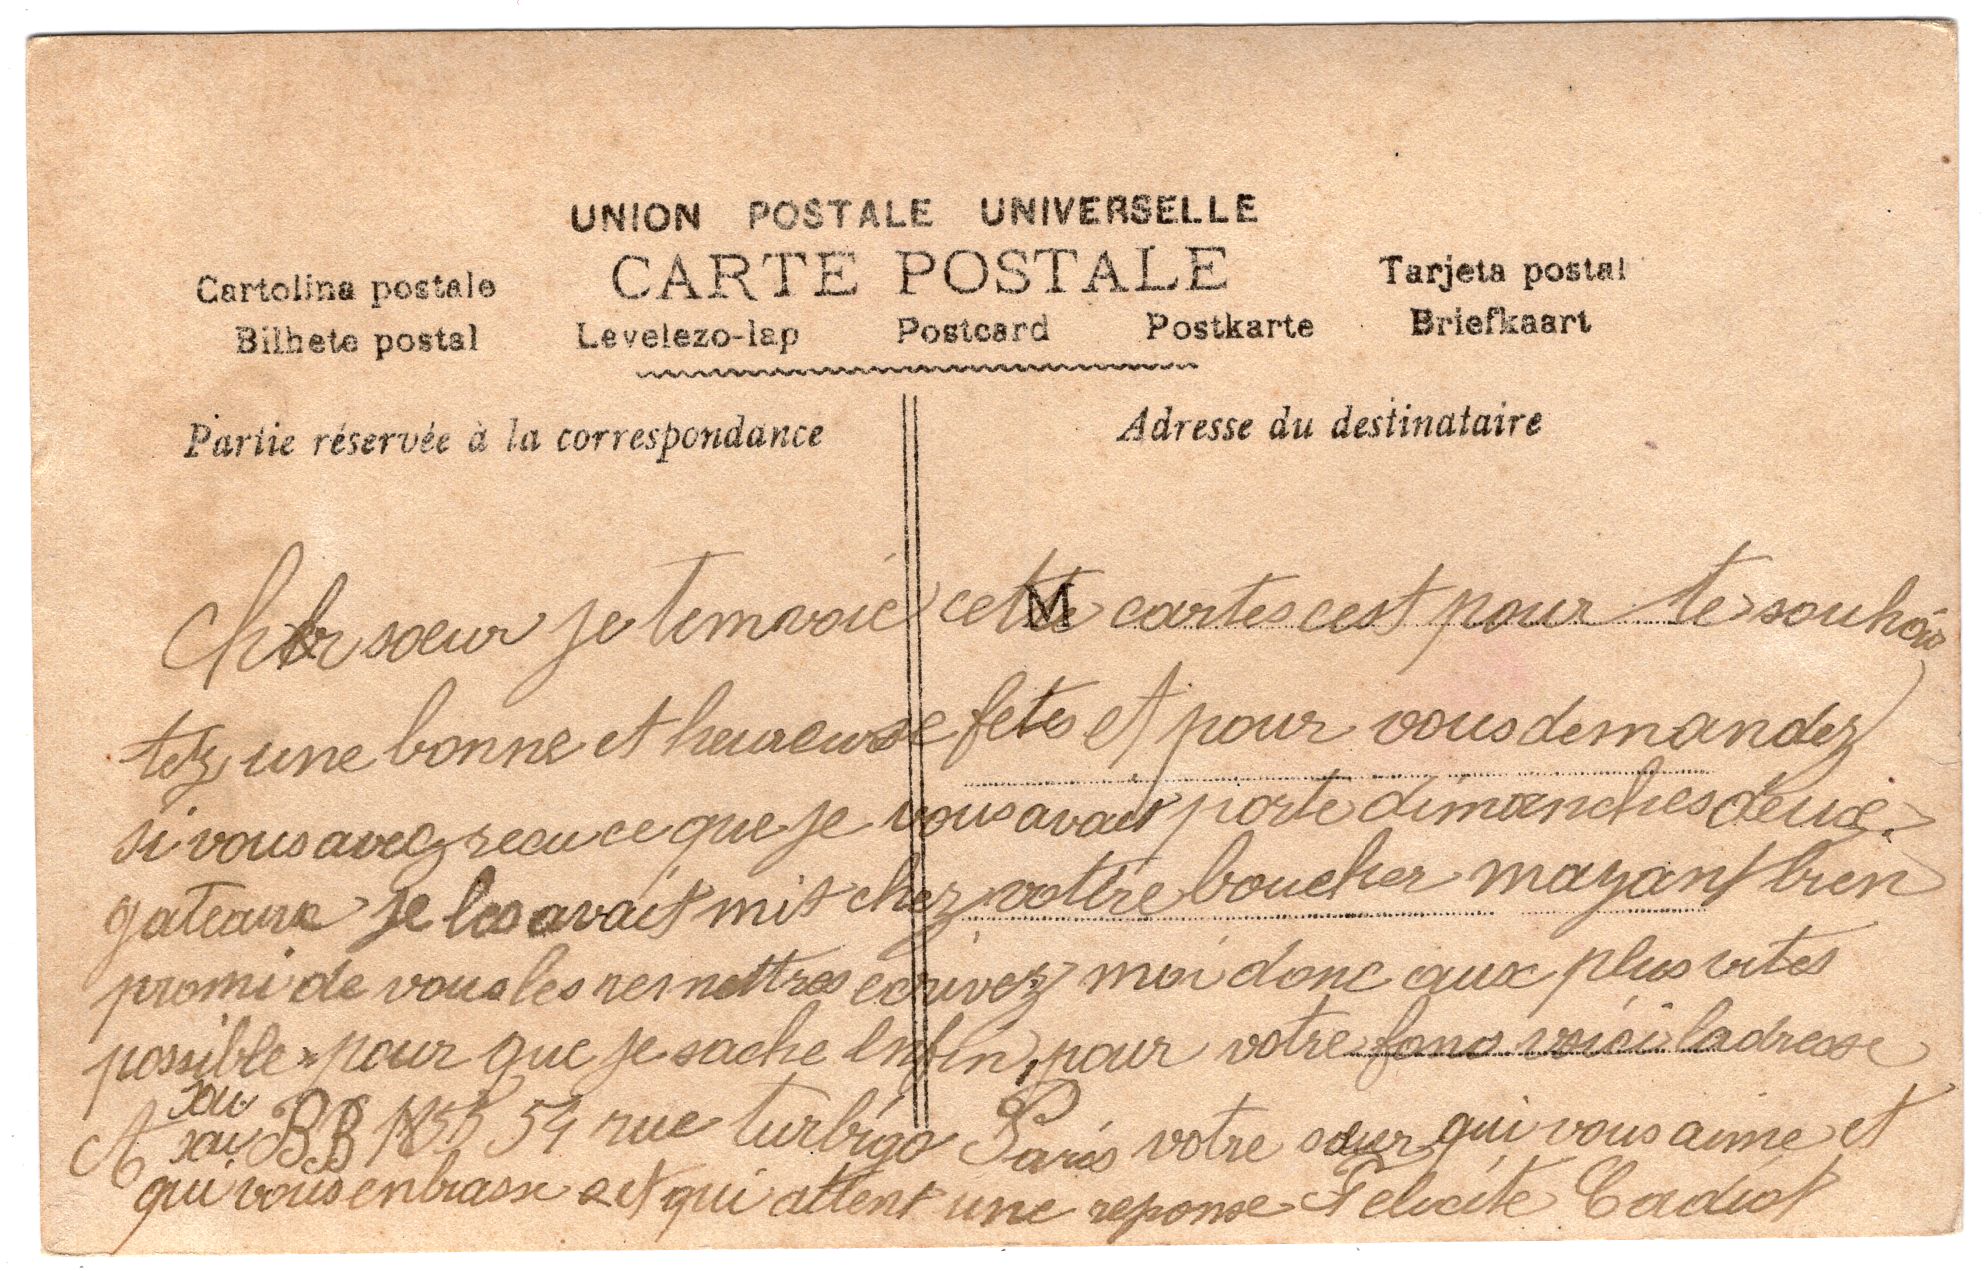 UNION POSTALE UNIVERSELLE
CARTE POSTALE
Cartolina postale
Tarjeta postal
Bilhete postal Levelezo-lap Postcard Postkarte Briefkaart
Partie réservée à la correspondance
Adresse du destinataire
M
Cher sœur je temvoie cette cartes cest pour te souhai
tez une bonne et heureuse fetes et pour vous demandez
si vous avez recu ce que je vous avait porte dimanches deux
gateaux je les avait mit chez votre boucher mayant bien
promi de vous les remettres ecrivez moi donc aux plus vites
possible pour que je sache enfin pour votre voici ladresse
A BB 1855 54 rue turbigo Paris votre sœur qui vous aime et
qui vous enbrasse et qui attent une reponse Felicite Cadiot